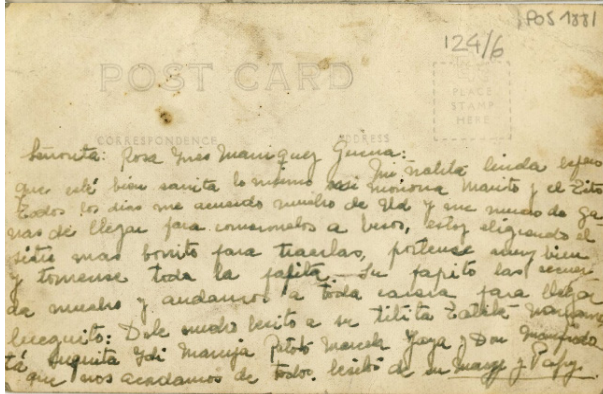 POS 1881
124/6
POST CARD
PLACE
STAMP
HERE
CORRESPONDENCE
ADDRESS
Señorita: Rosa Ines Manriquez Guerra:
Mi ñatita linda espero
que esté bien sanita lo mismo mi Monona Marito y el Tito
todos los dias me acuerdo mucho de Ud y me muero de ga
nas de llegar para comermelos a besos, estoy eligiendo el
sitio mas bonito para traerlas, portense muy bien
y tomense toda la papita.- Su papito las recuer
da mucho y andamos a toda carrera para llegar
lueguito: Dele mucho besito a su
tá Ydi Maruja Marcela Yaya y Don
que nos acordamos de todos, besitos de su Mamy y Papy.